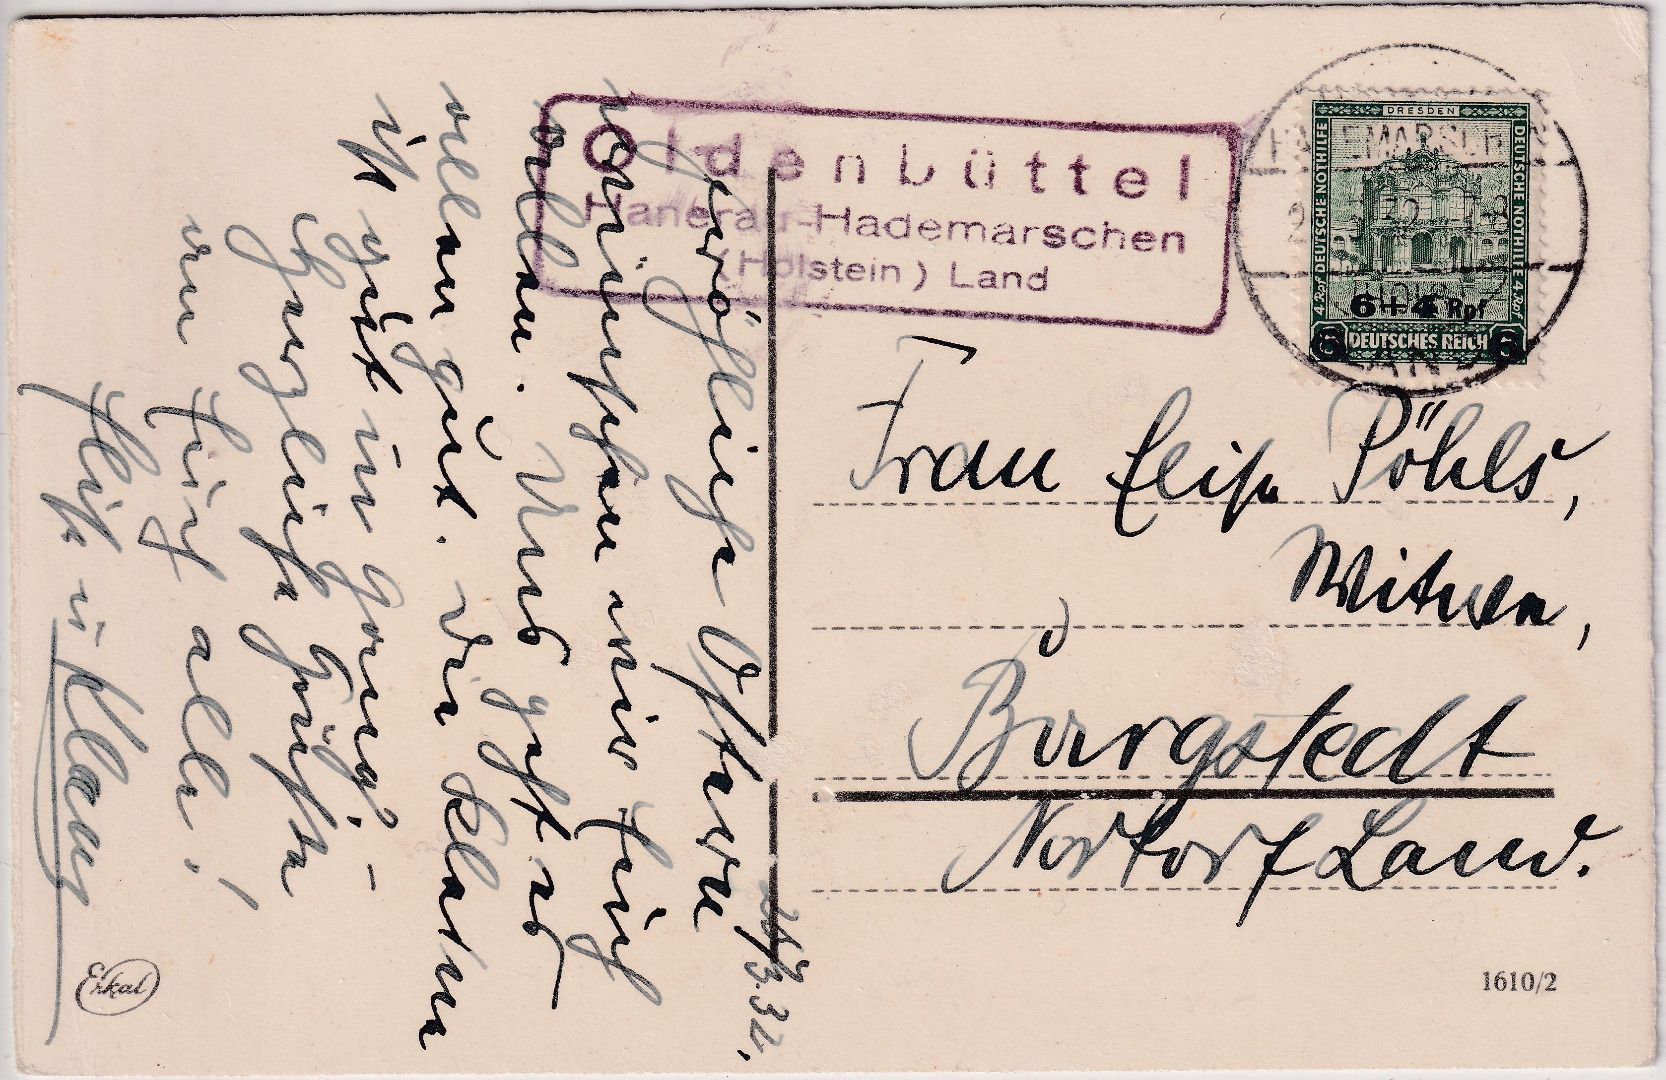 Oldenbüttel
Hanerau-Hademarschen
(Holstein) Land
DRESDEN
4 Rpf DEUTSCHE NOTHILFE
DEUTSCHE NOTHILFE 4 Rpf
6+4 Rpf
6 DEUTSCHES REICH 6
Frau Elise Pöhls,
Witwe,
Bargstedt
Nortorf Land.
1610/2
Erkal
Fröhliche Ostern
wünschen wir Euch
allen. Uns geht es
allen gut. Die Kleine
ist gut in Gang.
Herzliche Grüße
an Euch alle!